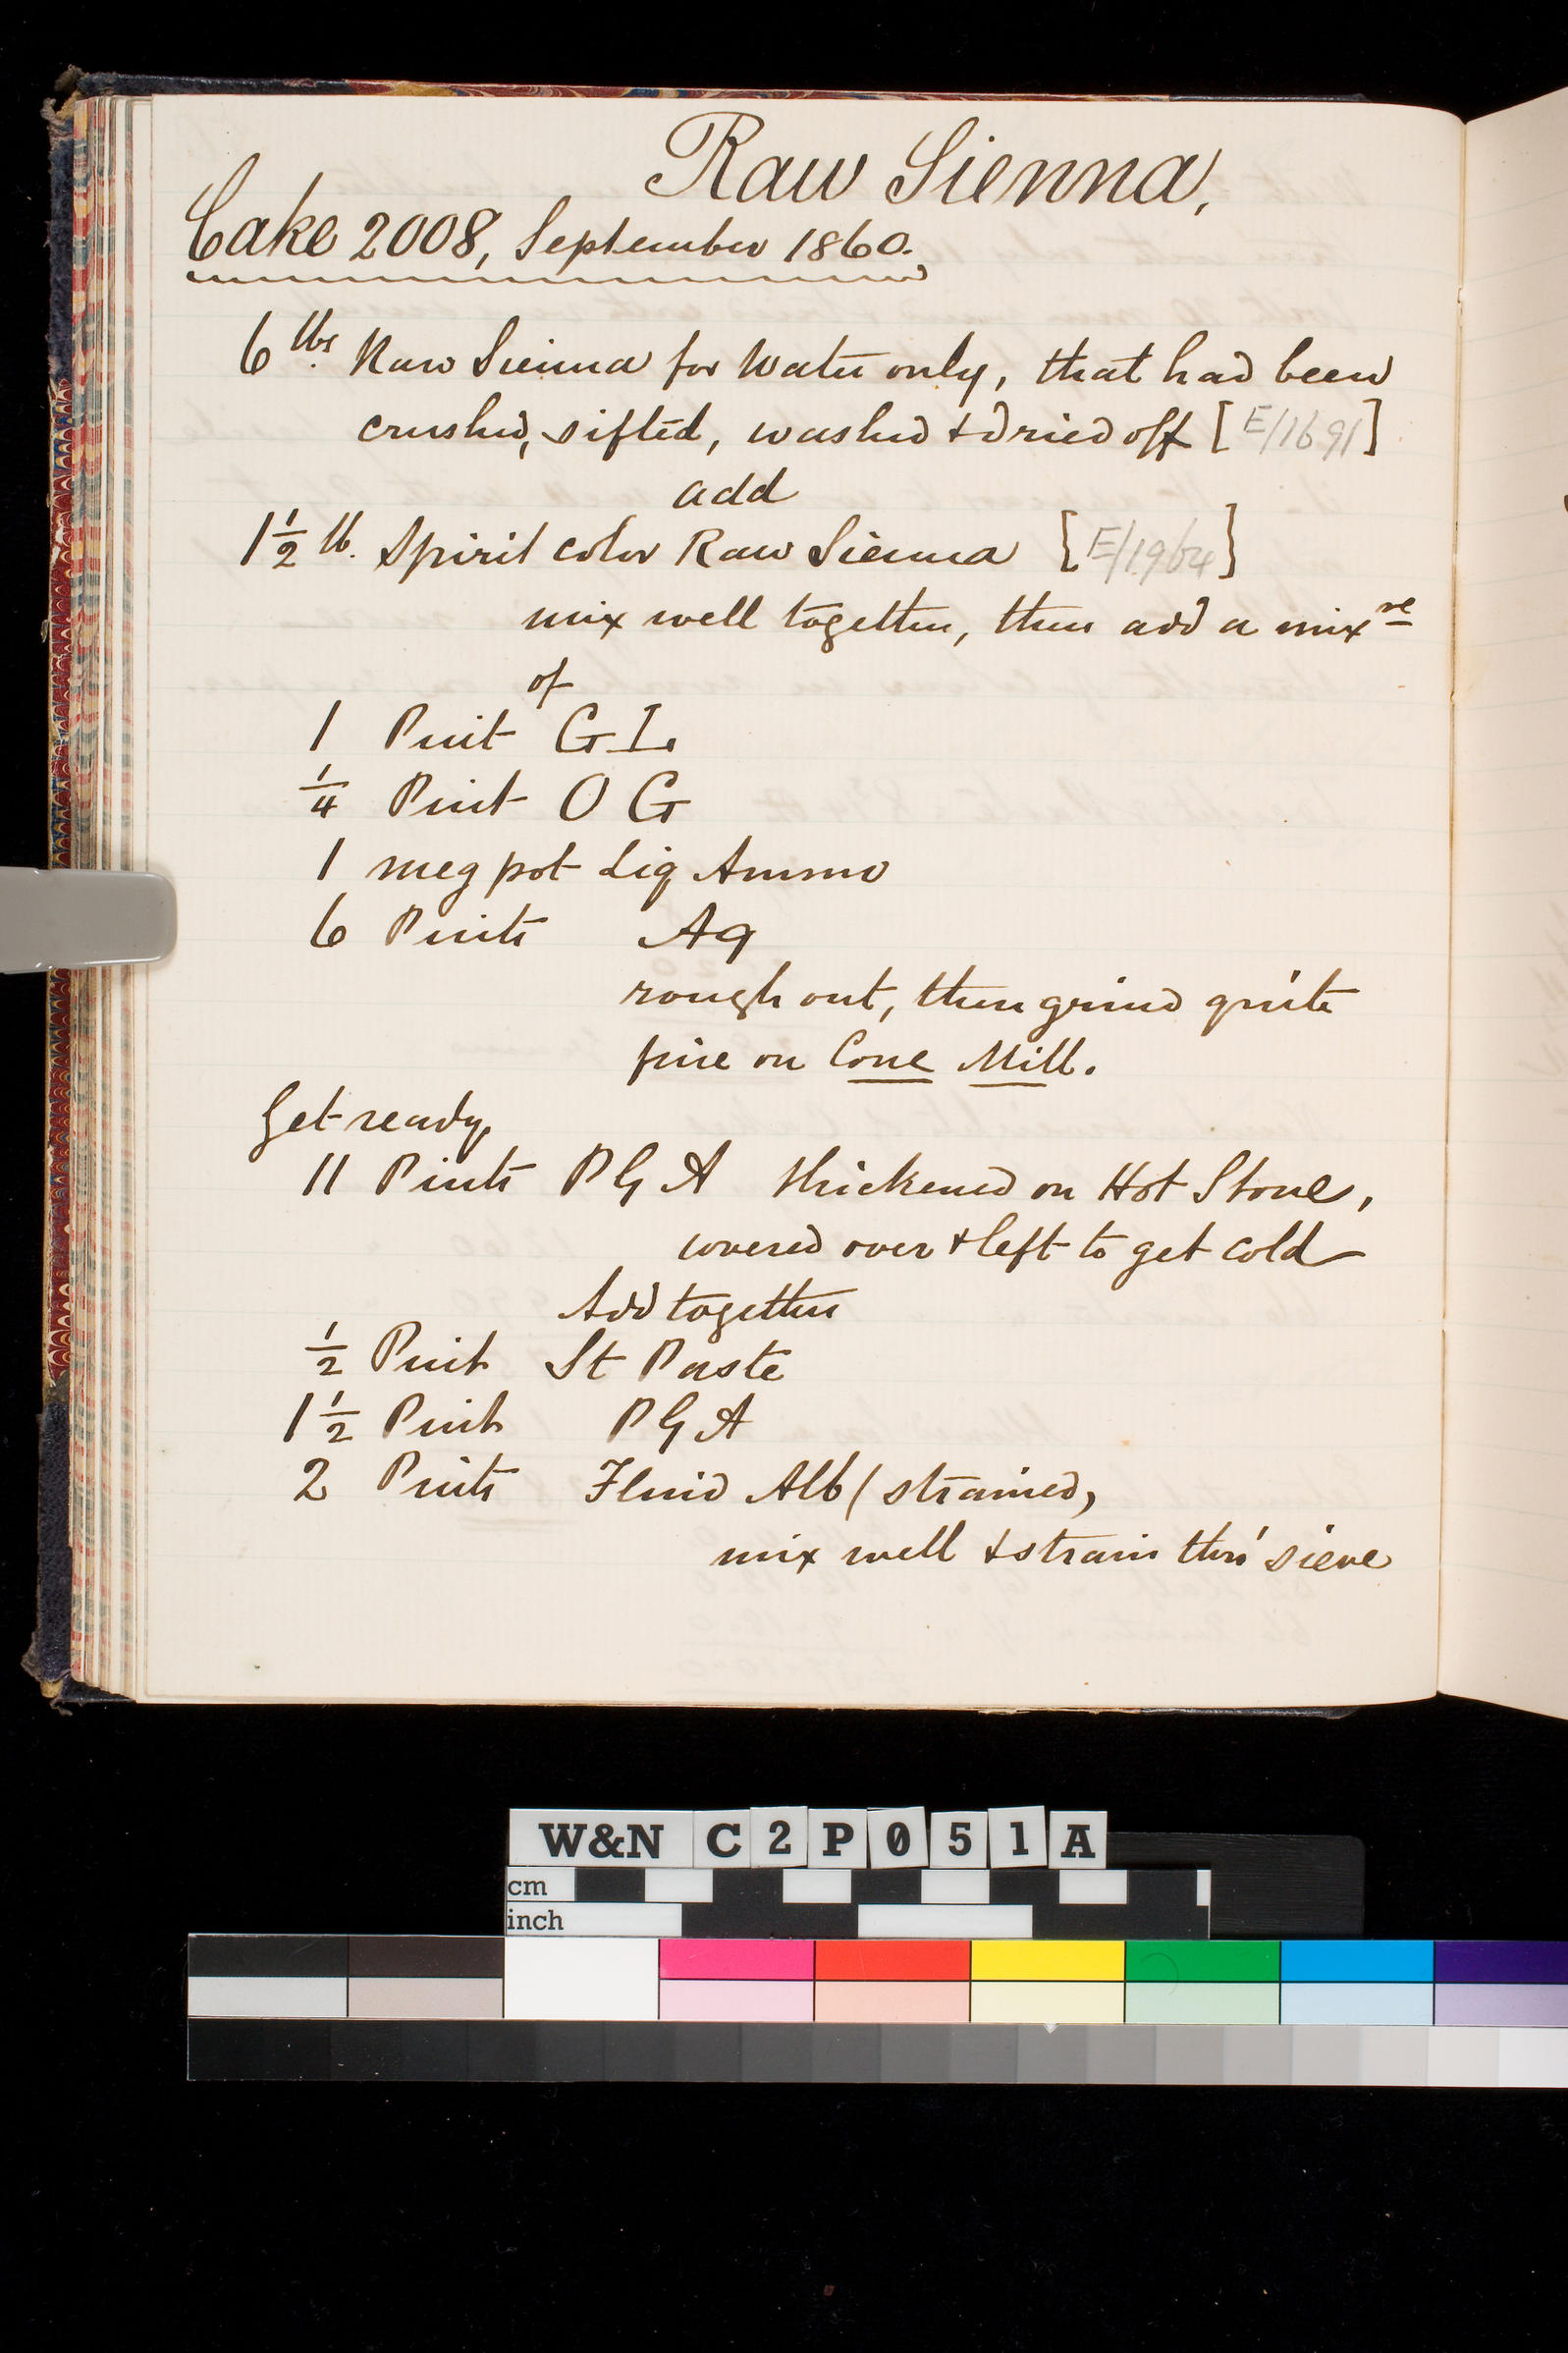 Raw Sienna,
Cake 2008, September 1860.
6 lbs. Raw Sienna for Water only, that had been
crushed, sifted, washed & dried off [E/1691]
add
1½ lb. Spirit color Raw Sienna [E/1964]
mix well together, then add a mixre
of
1 Pint GL
¼ Pint O G
1 meg pot Liq Ammo
6 Pints Aq
rough out, then grind quite
fine on Cone Mill.
Get ready,
11 Pints P G A thickened on Hot Stone,
covered over & left to get cold
Add together
½ Pint St Paste
1½ Pint P G A
2 Pints Fluid Alb/ strained,
mix well & strain thro' sieve
W&N C2P051A
cm
inch